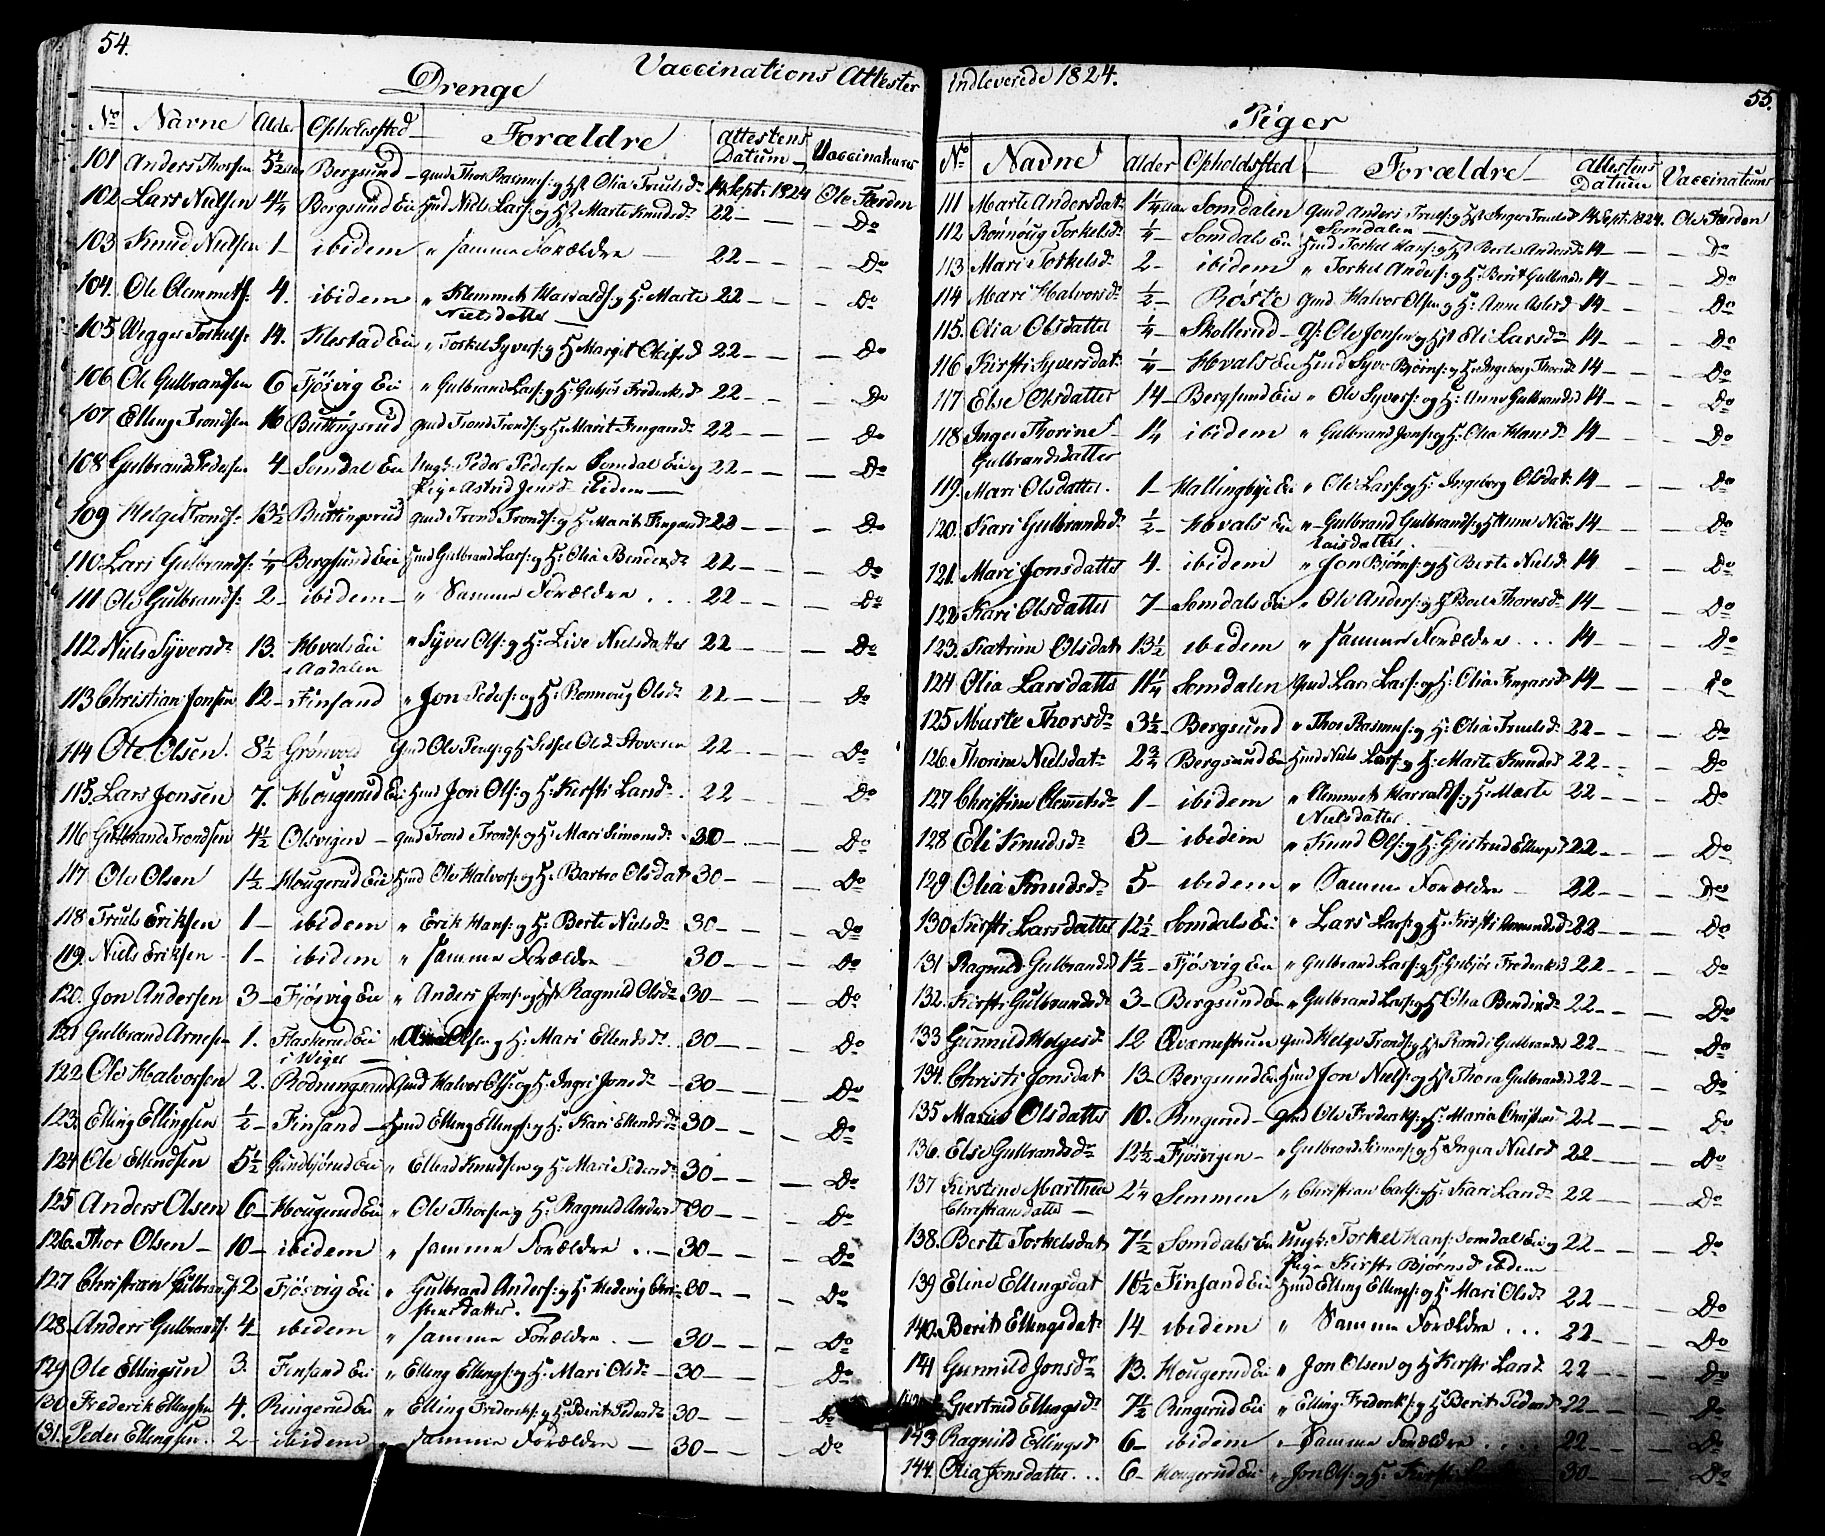 54.
Vaccinations Attester
Drenge
No Navne Alder Opholdssted Forældre Attestens Datum Vaccinateurer
101 Anders Thorsen 5½ Bergsund Gmd Thor Rasmus: og Hst Olia Truulsdr 14 Sept: 1824 Ole Færden
102 Lars Nielsen 4¼ Bergsund Eie Hmd Niels Lars: og Hst Marte Knudsdr 22 — — Do
103 Knud Nielsen 1 — ibidem " samme Forældre — 22 — — Do
104. Ole Clemmets: 4. ibidem " Klemmet Harvalds: og H: Marte 22 — — Do
Nielsdatter —
105 Torkels: 14. Klestad Eie " Torkel Syvers: og H Margit 22 — — Do
106 Ole Gulbrandsen 6 Fjösvig Eie " Gulbrand Lars: og H: Gubjör Frederiksd 22 — — Do
107 Elling Trondsen 16 Buttingsrud Gmd Trond Tronds: og H: Marit Fingarsdr 22 — — Do
108 Gulbrand Pedersen 4 — Somdal Eie Ungk: Peder Pedersen Somdal Eie og 22 — — Do
Pige Astrid Jensd ibidem —
109 Helge Tronds: 13½ Buttingsrud Gmd Trond Tronds: og H Marit Fingarsd 22 — — Do
110 Lars Gulbrands: ¼ Bergsund Eie Hmd Gulbrand Lars: og H: Olia Bendixdr 22 — — Do
111 Ole Gulbrands: 2 — ibidem — " Samme Forældre . . . 22 — — Do
112 Niels Syvers 13. Hvals Eie " Syver Ols: og H: Live Nielsdatter 22 — — Do
i Aadalen
113 Christian Jonsen 12 — Finsand " Jon Peders: og H: Ronnoug Olsdr 22 — — Do
114 Ole Olsen. 8½ Grönvold Gmd Ole Pouls: og H Sidsel Olsd 22 — — Do
115 Lars Jonsen 7. Hougerud Eie Hmd Jon Ols: og H: Kirsti Larsdr . 22 — — Do
116 Gulbrand Trondsen 4½ Olsvigen — Gmd Trond Tronds: og H: Mari Simonsdr 30 — — Do
117 Ole Olsen 1½ — Hougerud Eie Hmd Ole Halvors: og H: Barbro Olsdat 30 — — Do
118 Truls Eriksen 1 — ibidem " Erik Hans: og H: Berte Nielsdr 30 — — Do
119. Niels Eriksen 1 — ibidem " samme Forældre 30 — — Do
120. Jon Andersen 3 — Fjösvig Eie " Anders Jons: og Hst Ragnild Olsdr 30 — — Do
121 Gulbrand Arnesen 1. Flaskerud Eie " Olsen og H: Mari Ellendsdr . 30 — — Do
i Viger —
122 Ole Halvorsen 2. Rödningsand Gmd Halvor Ols: og H: Ingri Jonsdr — 30 — — Do
123. Elling Ellingsen ½ — Finsand — Hmd Elling Ellings: og H: Kari Ellendsdr 30 — — Do
124 Ole Ellendsen 5½ Gunbjörud Eie " Ellend Knudsen og H: Mari Pedersdr 30 — — Do
125 Anders Olsen 6 — Hougerud Eie " Ole Thorsen og H: Ragnild Andersd 30 — — Do
126. Thor Olsen — 10 — ibidem " samme Forældre . . — 30 — — Do
127 Christian Gulbrands: 2 Fjösvig Eie " Gulbrand Anders: og H: Hedevig Chri- 30 — — Do
stensdatter. —
128. Anders Gulbrands: 4 — ibidem " samme Forældre . — 30 — — Do
129 Ole Ellingsen 3. Finsand Eie " Elling Ellings: og H: Mari Olsdr — 30 — — Do
130 Frederik Ellingsen 4. Ringerud Eie " Elling Frederiks: og H: Berit Pedersdr 30 — — Do
131. Peder Ellingsen. 2 — ibidem samme Forældre — 30 — — Do
indleverede 1824.
55.
Piger
No Navne Alder Opholdssted Forældre Attestens Datum Vaccinateurer
111 Marte Andersdat: 1¼ Somdalen Gmd Anders Truls: og Hst Inger Trulsd 14 Sept: 1824. Ole Færden
Somdalen —
112 Rönnöug Torkelsdr ¼ — Somdals Eie Hmd Torkel Hans: og Hst Berte Andersdr 14 — — Do
113 Mari Torkelsdr 2 — ibidem " Torkel Anders: og H: Berit Gulbrandsd 14 — — Do
114 Mari Halvorsdr ½ — Röste Gmd Halvor Olsen og H: Anne Aslesd 14 — — Do
115. Olia Olsdatter ¼ Skollerud — G: Ole Jonsen og Hst Eli Larsdr 14 — — Do
116 Kirsti Syversdat: ¼ Hvals Eie Hmd Syver Björns: og H: Ingeborg Thorsd 14 — — Do
117 Else Olsdatter 14 — Bergsund Eie " Ole Syvers: og H: Anne Gulbrandsd 14 — — Do
118 Inger Thorine 1¼ ibidem " Gulbrand Jons: og H: Olia Hansdr 14 — — Do
Gulbrandsdatter
119. Mari Olsdatter. 1 — Hallingbye Eie " Ole Lars: og H: Ingeborg Olsdat: 14 — — Do
120. Kari Gulbrandsdr ½ — Hvals Eie " Gulbrand Gulbrands: og H Anne Nico 14 — — Do
laisdatter.
121. Mari Jonsdatter 4. ibidem " Jon Björns: og H Berte Nielsdr 14 — Do
122 Kari Olsdatter 7 — Somdals Eie " Ole Anders: og H Boel Thoresdr 14 — — Do
123. Katrine Olsdat 13½ ibidem " samme Forældre . . . 14 — Do
124 Olia Larsdatter 11¼ Somdalen Gmd Lars Lars: og H: Olia Fingarsd 14 — — Do
125 Marte Thorsdr 3½ — Bergsund " Thor Rasmus: og H: Olia Truulsdr 22 — — Do
126. Thorine Nielsdat: 2¾ Bergsund Eie Hmd Niels Lars: og H: Marte Knudsd 22 — — Do
127 Christine Clemmetsdr 1 — ibidem " Clemmet Harvalds: og H: Marte 22 — — Do
Nielsdatter —
128 Eli Knudsdr 3 — ibidem " Knud Ols: og H: Gjertrud Ellingsd 22 — — Do
129 Olia Knudsdr 5 — ibidem " Samme Forældre — 22 — — Do
130 Kirsti Larsdatter 12½ Somdals Eie " Lars Lars: og H: Kirsti Amundsd 22 — — Do
131 Ragnild Gulbrandsd 1½ — Fjösvig Eie " Gulbrand Lars: og H Gubjör Frederiksd 22 — — Do
132. Kirsti Gulbrandsdr 3 — Bergsund Eie " Gulbrand Lars: og H: Olia Bendixdr 22 — — Do
133 Gunnild Helgesdr 12 Qværnstrun Gmd Helge Tronds: og Hst Randi Gulbrandsd 22 — — Do
134. Christi Jonsdat 13 — Bergsund Eie Hmd Jon Niels: og Hst Thora Gulbrandsd 22 — — Do
135 Maria Olsdatter 10. Ringerud — Gmd Ole Frederiks: og H: Maria Christensd 22 — — Do
136. Else Gulbrandsdr 12½ — Fjösvigen — " Gulbrand Simons: og H Inger Nielsd 22 — — Do
137 Kirstine Marthea 2¼ Semmen " Christian Carls: og H: Kari Larsdr 22 — — Do
Christiansdatter —
138. Berte Torkelsdat 7½ Somdals Eie Ungk: Torkel Hans: Somdal Eie og 22 — — Do
Pige Kirsti Björnsd ibidem
139 Eline Ellingsdat 16½ Finsand Eie Hmd Elling Ellings: og H: Mari Olsdr 22 — — Do
140. Berit Ellingsdat 14 — ibidem " Samme Forældre . . . 22 — — Do
141 Gunnild Jonsdr 13. Hougerud Eie " Jon Olsen og H Kirsti Larsd 22 — — Do
Gjertrud Ellingsdr 7½ Ringerud Eie " Elling Frederiks: og H Berit Pedersd 22 — — Do
143 Ragnild Ellingsd 6 — ibidem " Samme Forældre . . . . 22 — — Do
144. Olia Jonsdatter . . . 6 — Hougerud Eie " Jon Ols: og H: Kirsti 30 — — Do